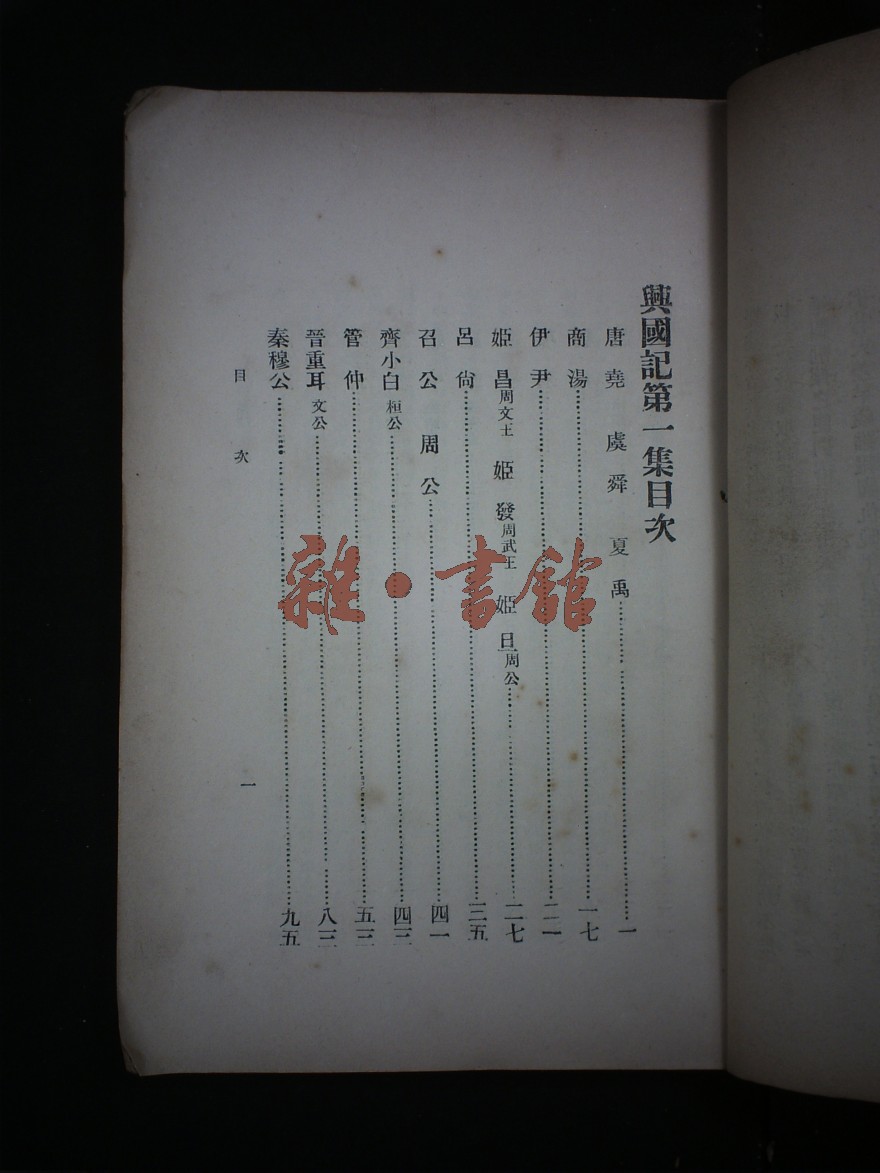 興國記第一集目次
唐堯 虞舜 夏禹…………一
商湯…………一七
伊尹…………二一
姬昌周文王 姬發周武王 姬旦周公…………二七
呂尙…………三五
召公 周公…………四一
齊小白桓公…………四三
管仲…………五三
晉重耳文公…………八三
秦穆公…………九五
目次 一
雜·書館